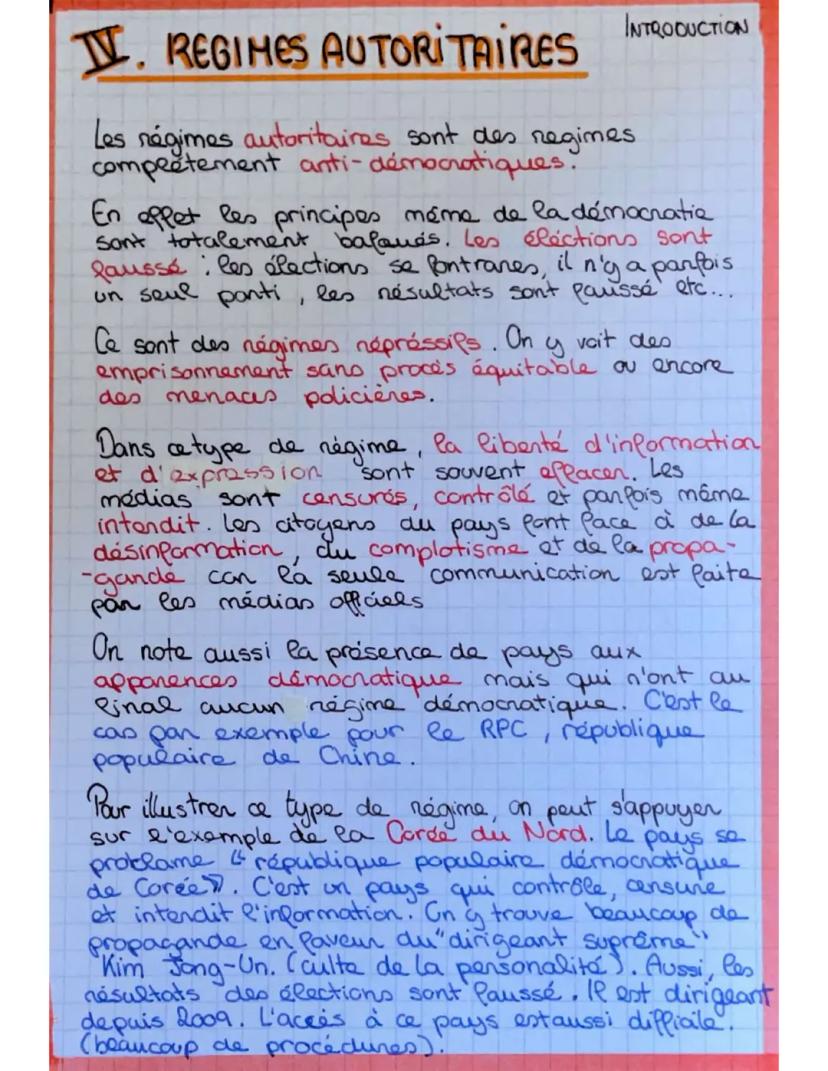 INTRODUCTION
IV. REGIMES AUTORITAIRES
Les régimes autoritaires sont des regimes
complètement anti-démocratiques.
En effet les principes même de la démocratie
sont totalement bafoués. Les éléctions sont
faussé : les élections se font rares, il n'y a parfois
un seul parti, les résultats sont faussé etc...
Ce sont des régimes répréssifs. On y voit des
emprisonnement sans procès équitable ou encore
des menaces policières.
Dans ce type de régime, la liberté d'information
et d'expression sont souvent effacer. Les
médias sont censurés, contrôlé et parfois même
interdit. Les citoyens du pays font face à de la
désinformation, du complotisme et de la propa-
-gande car la seule communication est faite
par les médias officiels
On note aussi la présence de pays aux
apparences démocratique mais qui n'ont au
final aucun régime démocratique. C'est le
cas par exemple pour le RPC, république
populaire de Chine.
Pour illustrer ce type de régime, on peut s'appuyer
sur l'exemple de la Corée du Nord. Le pays se
proclame "république populaire démocratique
de Corée". C'est un pays qui contrôle, censure
et interdit l'information. On y trouve beaucoup de
propagande en faveur du "dirigeant suprême"
Kim Jong-Un. (culte de la personalité). Aussi, les
résultats des élections sont faussé. Il est dirigeant
depuis 2009. L'accès à ce pays est aussi difficile.
(beaucoup de procédures).